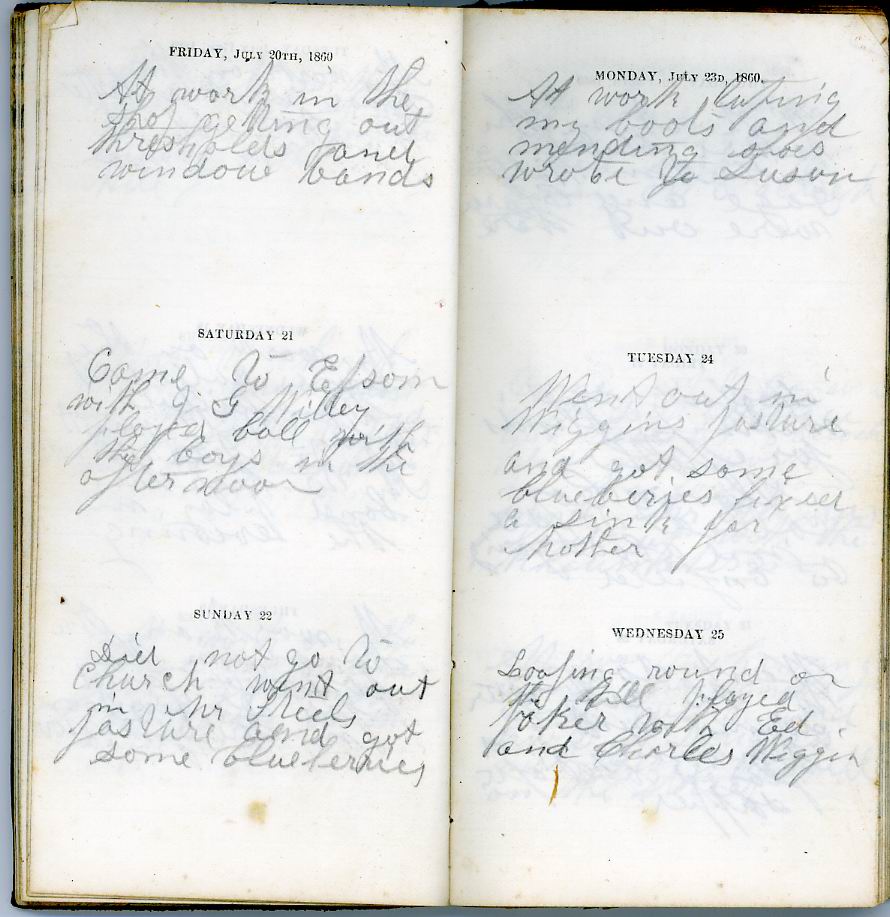 FRIDAY, JULY 20TH, 1860
At work in the
shop getting out
thresholds and
window bands
SATURDAY 21
Came to Epsom
with J G Willey
played ball with
the boys in the
afternoon
SUNDAY 22
Did not go to
Church went out
in Mr Steels
pasture and got
some blueberries
MONDAY, JULY 23D, 1860.
At work
my boots and
mending shoes
wrote to Susan
TUESDAY 24
Went out in
Wiggins pasture
and got some
blueberries fixed
a sink for
Mother
WEDNESDAY 25
Loafing round on
the hill played
poker with Ed
and Charles Wiggin